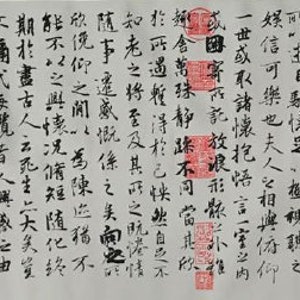 娱信可樂也夫人之相與俯仰
一世或取諸懷抱悟言一室之内
或因寄所託放浪形骸之外雖
趣舍萬殊静躁不同當其欣
於所遇暫得於己快然自足不
知老之將至及其所之既惓情
隨事遷感慨係之矣向之所
欣俛仰之間以為陳迹猶不
能不以之興懷況脩短隨化終
期於盡古人云死生亦大矣豈
不痛哉每攬昔人興感之由